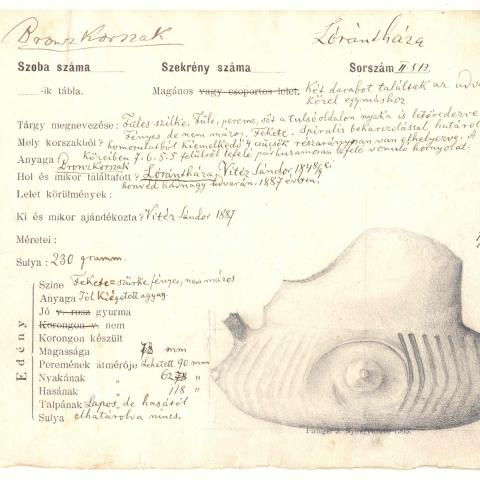 Bronz Korszak
Lórántháza
Szoba száma
Szekrény száma
Sorszám II 513
-ik tábla.
Magános vagy csoportos lelet. Két darabot találtak az udva
közel egymáshoz
Tárgy megnevezése: Füles szilke. Füle, pereme, sőt a tulsó oldalon nyaka is letöredezve
Fényes de nem mázos. Fekete. Spirális bekarcolással határolt
Mely korszakból? homorulatból kiemelkedő 4 csücsök részarányosan van elhelyezve. A
Bronz Korszak közeiben 7.6.5.5 felülről lefelé párhuzamosan lefelé vonuló hornyolat.
Anyaga
Hol és mikor találtatott? Lórántháza, Vitéz Sándor 1848/9 ki
honvéd hadnagy udvarán, 1887 évben.
Lelet körülmények:
Ki és mikor ajándékozta? Vitéz Sándor 1887
Méretei:
Sulya: 230 gramm.
Edény
Szine Fekete=szürke, fényes, nem mázos
Anyaga Jól kiégetett agyag.
Jó v. rosz gyurma
Korongon v. nem
Korongon készült
Magassága 78 mm
Peremének átmérője Lehetett 90 mm
Nyakának „ 62 „
Hasának 118 „
Talpának Lapos, de hasától
Sulya elhatárolva nincs.